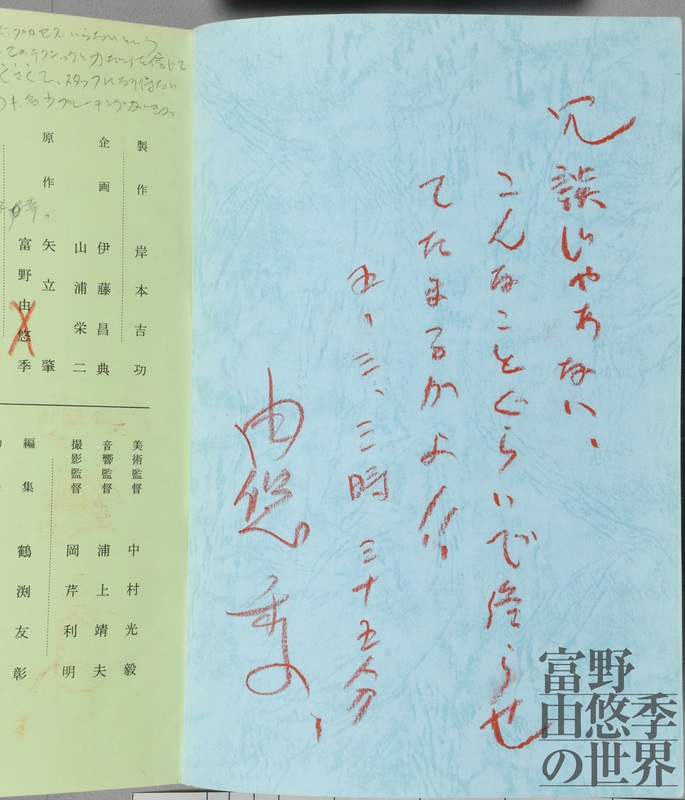 冗談じゃあない、
こんなことぐらいで らせ
てたまるかよ!!
五、三、三時三十五分
由悠季、
製作 岸本吉功
企画 伊藤昌典
山浦栄二
原作 矢立肇
富野由悠季
美術監督 中村光毅
音響監督 浦上靖夫
撮影監督 岡芹利明
編集 鶴渕友彰
プロセスいらないという
てのテクニックと力だけを信じて
スタッフになり得ない
富野
由悠季
の世界